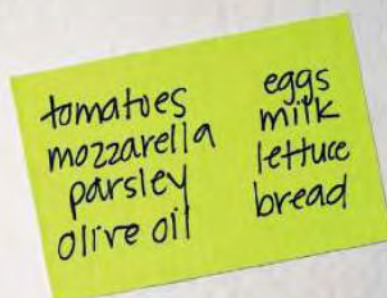 tomatoes
mozzarella
parsley
olive oil
eggs
milk
lettuce
bread